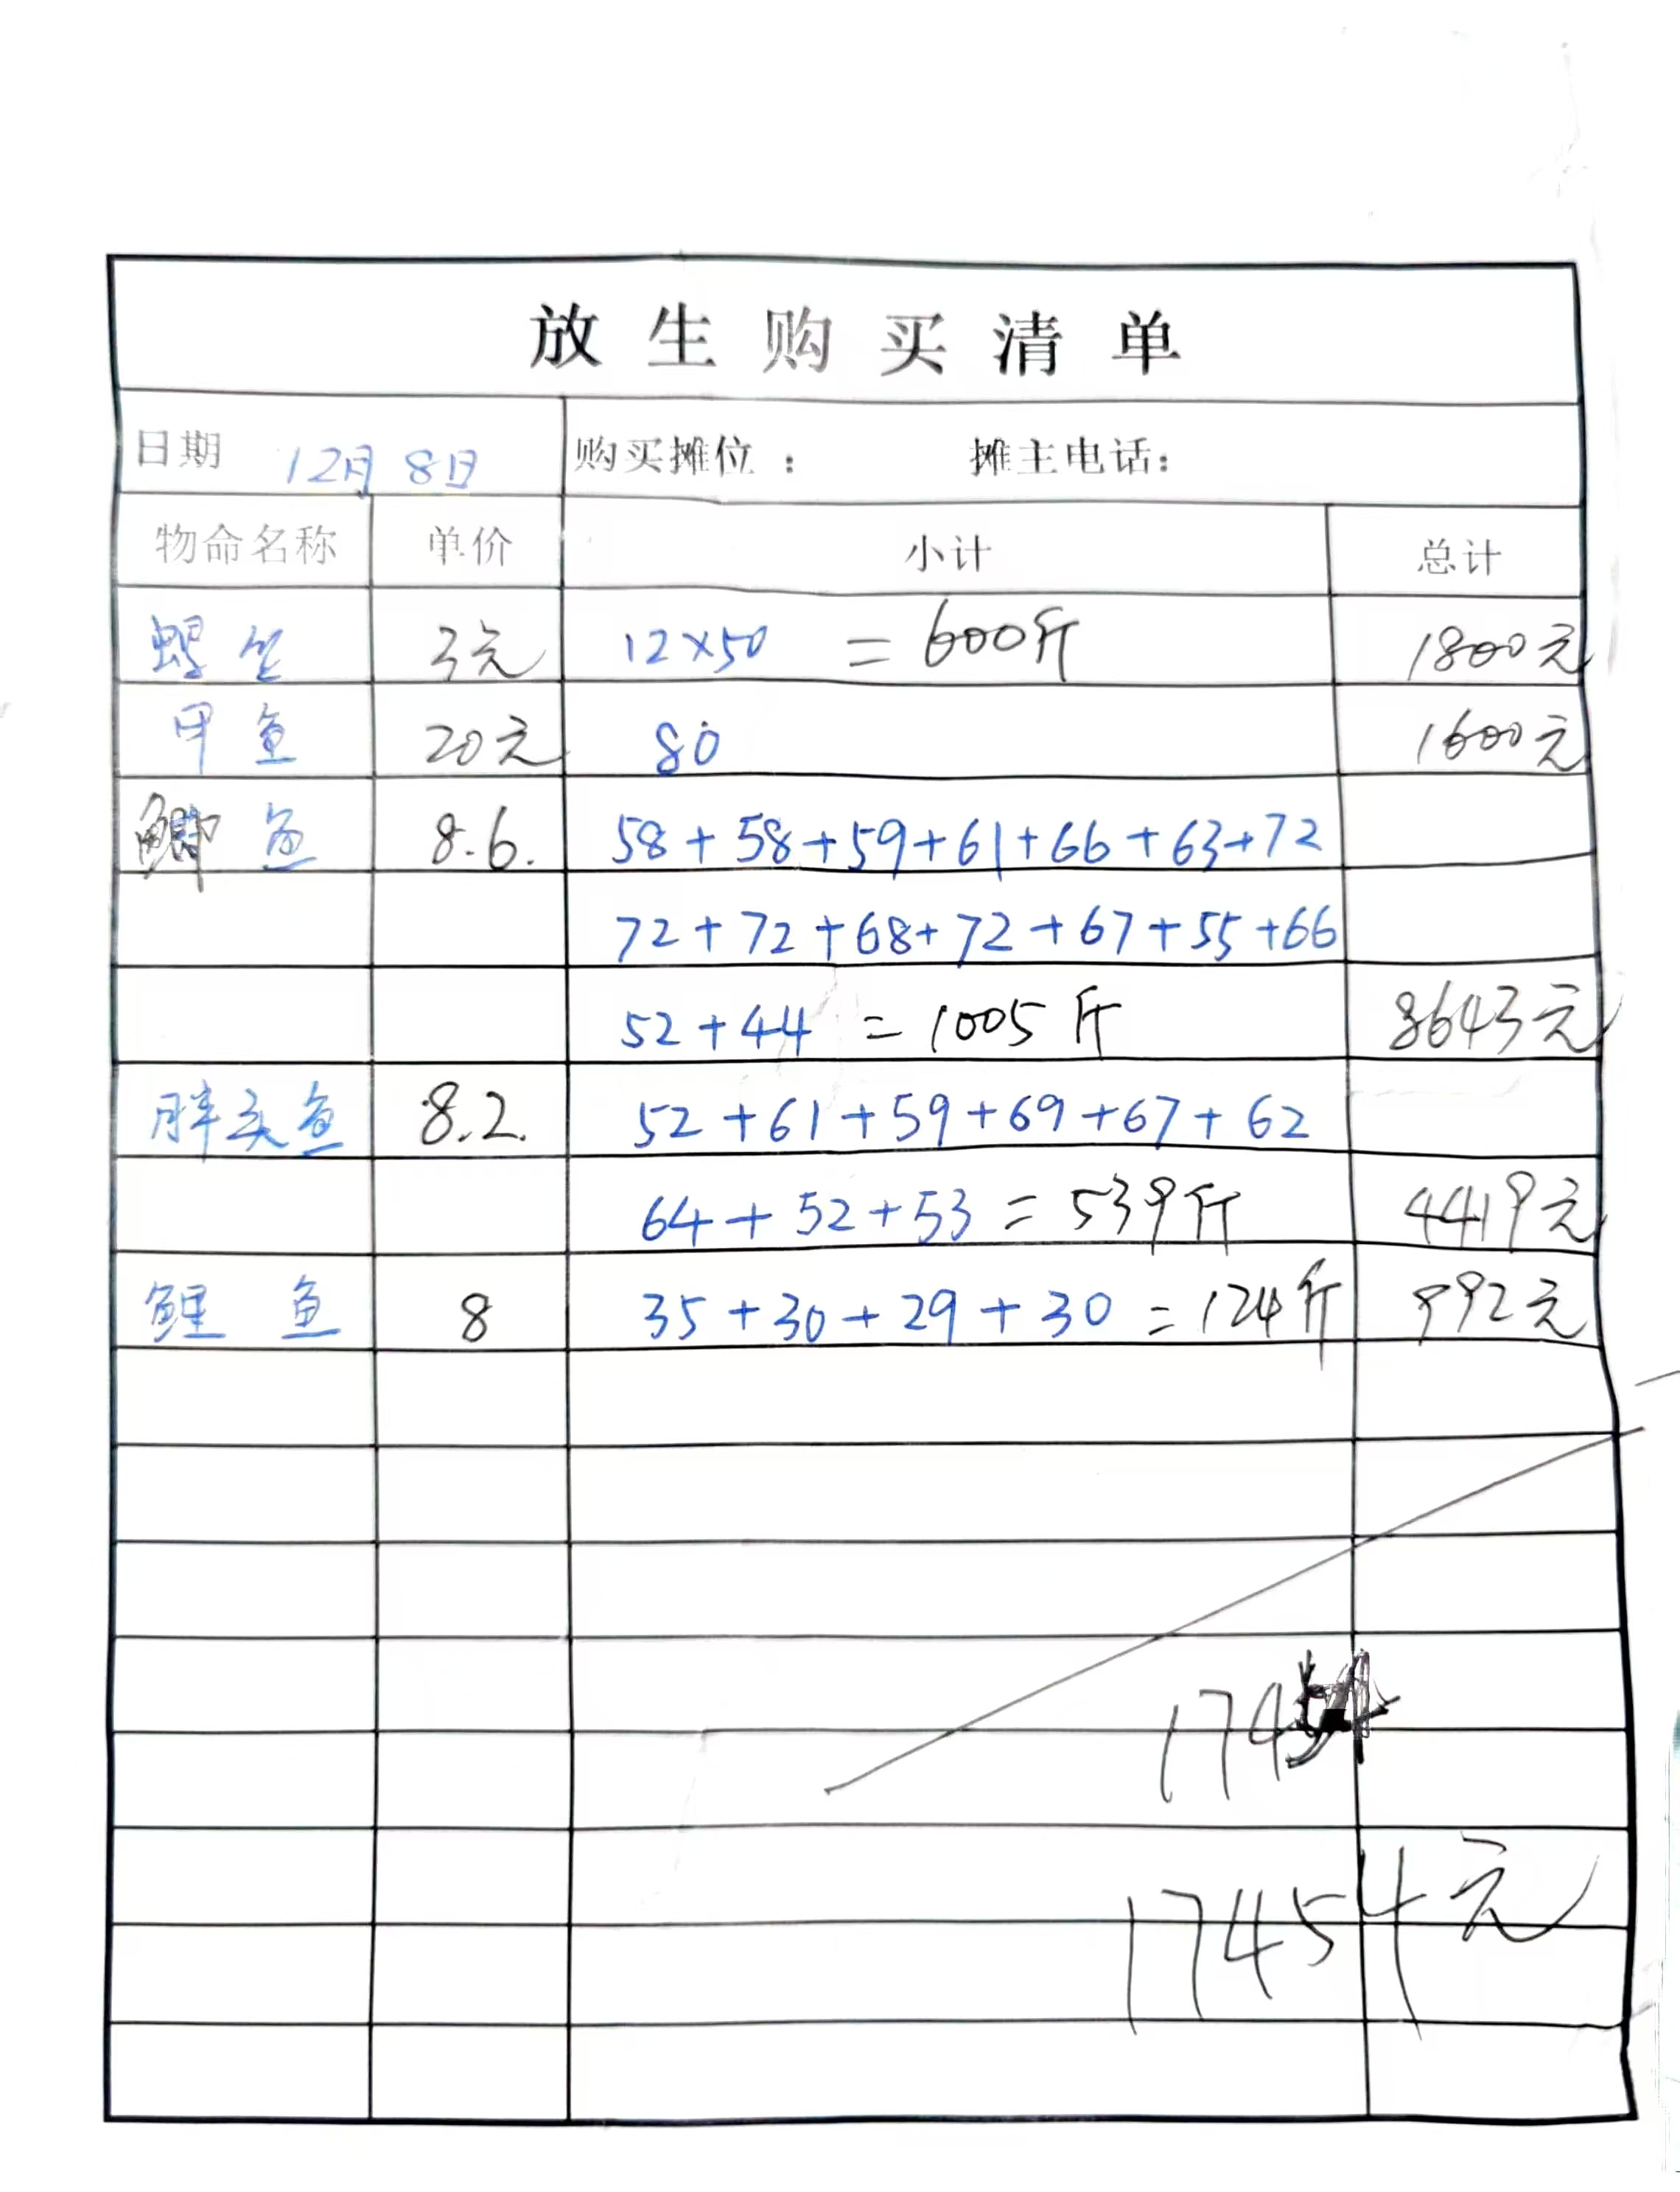 放生购买清单
日期 12月8日 购买摊位： 摊主电话：
物命名称 单价 小计 总计
3元 12×50 =600斤 1800元
甲鱼 20元 80 1600元
鲫鱼 8.6. 58+58+59+61+66+63+72
72+72+68+72+67+55+66
52+44 =1005斤 8643元
胖头鱼 8.2. 52+61+59+69+67+62
64+52+53=539斤 4419元
鲤鱼 8 35+30+29+30=124斤 992元
17454元